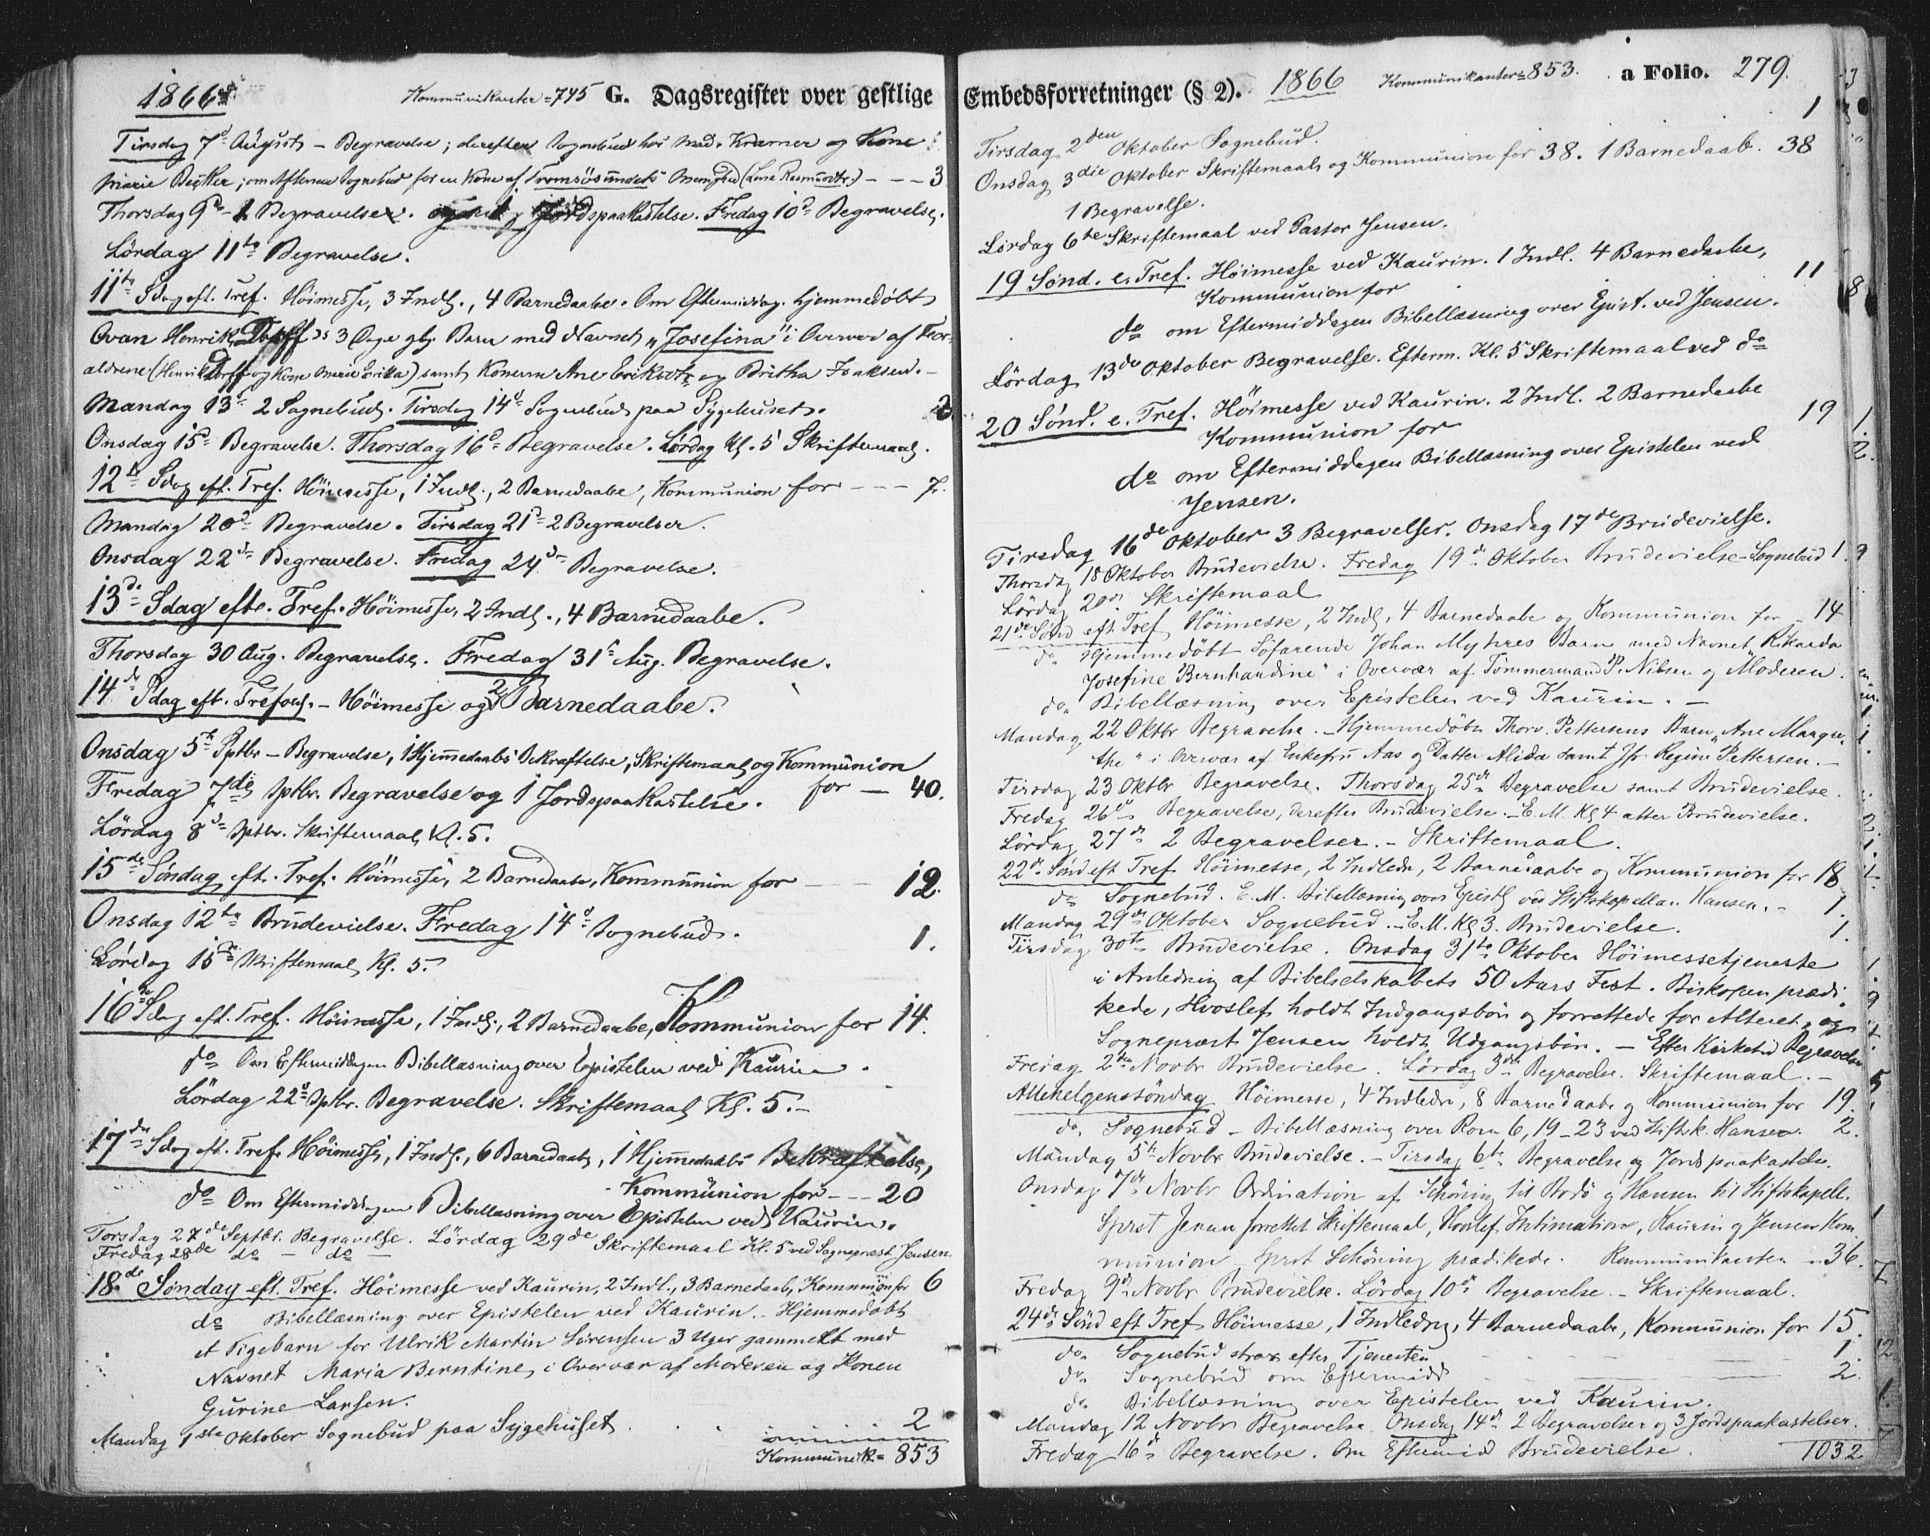 1866. Kommunikanter = 745 G. Dagsregister over gestlige
Tirsdag 7de August – Begravelse; derefter Sognebud hos Mad. Kræmer og Kone
Marie Becker; om Aftenen Sognebud for en Kone af Tromsösundets Menighed (Lena Rasmusdtr.) – – – 3
Thorsdag 9de – 1 Begravelse. Jordspaakastelse. Fredag 10de Begravelse.
Lördag 11te Begravelse.
11te Sdag eft. Tref. Höimesse, 3 Indl., 4 Barnedaabe. Om Eftermiddag. hjemmedöbt
Ovan Henrik 3 Dage gl. Barn med Navnet "Josefina" i Overvær af For-
ældrene (Henrik og Kone Marie Erika) samt Konerne Ane Eriksdtr og Britha Isaksen. –
Mandag 13de 2 Sognebud. Tirsdag 14de Sognebud paa Sygehuset. 2.
Onsdag 15de Begravelse. Thorsdag 16de Begravelse. Lördag Kl. 5 Skriftemaal.
12te Sdag eft. Tref. Höimesse, 1 Indl., 2 Barnedaabe, Kommunion for – – – 7.
Mandag 20de Begravelse. Tirsdag 21de 2 Begravelser.
Onsdag 22de Begravelse. Fredag 24de Begravelse.
13de Sdag efte. Tref. Höimesse, 2 Indl., 4 Barnedaabe.
Thorsdag 30 Aug. Begravelse. Fredag 31te Aug. Begravelse.
14de Sdag eft. Trefoes. – Höimesse og 2 Barnedaabe.
Onsdag 5te Sptbr – Begravelse, 1 Hjemmedaabs Bekræftelse, Skriftemaal og Kommunion
Fredag 7de Sptbr. Begravelse og 1 Jordspaakastelse. for – 40.
Lördag 8de Sptbr. Skriftemaal Kl. 5.
15de Söndag eft. Tref. Höimesse, 2 Barnedaabe, Kommunion for – – 12.
Onsdag 12te Brudevielse. Fredag 14de Sognebud. 1.
Lördag 15de Skriftemaal Kl. 5.
16de Sdag eft. Tref. Höimesse, 1 Indl., 2 Barnedaabe, Kommunion for 14.
do Om Eftermiddagen Bibellæsning over Epistelen ved Kaurin.
Lördag 22de Sptbr. Begravelse. Skriftemaal Kl. 5. –
17de Sdag eft. Tref. Höimesse, 1 Indl., 6 Barnedaab, 1 Hjemmedaabs Bekræftelse,
Kommunion for – – – 20
do Om Eftermiddagen Bibellæsning over Epistelen ved Kaurin.
Torsdag 27de Septbr. Begravelse. Lördag 29de Skriftemaal Kl. 5 ved Sognepræst Jensen.
Fredag 28de do – do –
18de Söndag eft. Tref. Höimesse ved Kaurin, 2 Indl., 3 Barnedaab, Kommunion for 6
do Bibellæsning over Epistelen ved Kaurin. Hjemmedöbt
et Pigebarn for Ulrik Martin Sörensen 3 Uger gammelt med
Navnet Maria Berntine, i Overvær af Moderen og Konen
Gurine Larsen.
Mandag 1ste Oktober Sognebud paa Sygehuset. 2
Kommunik = 853
Embedsforretninger (§ 2). 1866 Kommunikanter = 853. a Folio. 279.
Tirsdag 2den Oktober Sognebud. 1
Onsdag 3die Oktober Skriftemaal og Kommunion for 38. 1 Barnedaab. 38
1 Begravelse.
Lördag 6te Skriftemaal ved Pastor Jensen.
19 Sönd. e. Tref. Höimesse ved Kaurin. 1 Indl. 4 Barnedaabe,
Kommunion for 11
do om Eftermiddagen Bibellæsning over Epist. ved Jensen.
Lördag 13de Oktober Begravelse. Efterm. Kl. 5 Skriftemaal ved do
20 Sönd. e. Tref. Höimesse ved Kaurin. 2 Indl. 2 Barnedaabe
Kommunion for 19
do om Eftermiddagen Bibellæsning over Epistelen ved
Jensen.
Tirsdag 16de Oktober 3 Begravelser. Onsdag 17de Brudevielse.
Thorsdag 18 Oktober Brudevielse. Fredag 19de Oktober Brudevielse – Sognebud 1.
Lördag 20de Skriftemaal
21de Sönd eft Tref Höimesse, 2 Indl, 4 Barnedaabe og Kommunion for – 14
do. Hjemmedöbt Söfarende Johan Myhres Barn med Navnet Rikarda
Josefine Bernhardine" i Overvær af Tömmermand P. Nilsen og Moderen.
do. Bibellæsning over Epistelen ved Kaurin. –
Mandag 22 Oktbr Begravelse. – Hjemmedöbt Thorv. Pettersens Barn "Ane Margre-
the" i Overvær af Enkefru Aas og Datter Alida samt Jfr Regine Pettersen. –
Tirsdag 23 Oktbr Begravelse. Thorsdag 25de Begravelse samt Brudevielse.
Fredag 26de Begravelse, derefter Brudevielse. – E. M. Kl 4 atter Brudevielse.
Lördag 27de 2 Begravelser. – Skriftemaal.
22de Sönd eft Tref Höimesse, 2 Indledn, 2 Barnedaabe og Kommunion for 18
do Sognebud. E. M. Bibellæsning over Epistl ved Stiftskapellan Hansen. – 1.
Mandag 29de Oktober Sognebud. – E. M. Kl 3. Brudevielse. 1.
Tirsdag 30te Brudevielse. Onsdag 31te Oktober Höimessetjeneste
i Anledning af Bibelselskabets 50 Aars Fest. Biskopen prædi-
kede, Hvoslef holdt Indgangsbön og forrettede for Alteret, og
Sognepræst Jensen holdt Udgangsbön. – Efter Kirketid Begravelse
Fredag 2den Novbr Brudevielse. Lördag 3de Begravelse. Skriftemaal. –
Allehelgenssöndag Höimesse, 4 Indledn, 8 Barnedaabe og Kommunion for 19.
do. Sognebud – Bibellæsning over Rom 6, 19–23 ved Stiftsk. Hansen. 2.
Mandag 5te Novbr Brudevielse. – Tirsdag 6te Begravelse og Jordspaakastelse.
Onsdag 7de Novbr Ordination af Schöning til Bodö og Hansen til Stiftskapell.
Sprst Jensen forrettet Skriftemaal, Hvoslef Intimation, Kaurin og Jensen Kom-
munion, Sprst Schöning prædikede. Kommunikanter – 36.
Fredag 9de Novbr Brudevielse. Lördag 10de Begravelse. – Skriftemaal.
24de Sönd eft Tref Höimesse, 1 Indledng, 4 Barnedaabe, Kommunion for 15.
do. Sognebud strax efter Tjenesten 1.
do. Sognebud om Eftermidd 2.
do. Bibellæsning over Epistelen ved Kaurin.
Mandag 12 Novbr Begravelse. Onsdag 14de 2 Begravelser og 3 Jordspaakastelser.
Fredag 16de Begravelse. Om Eftermid Brudevielse. 1032